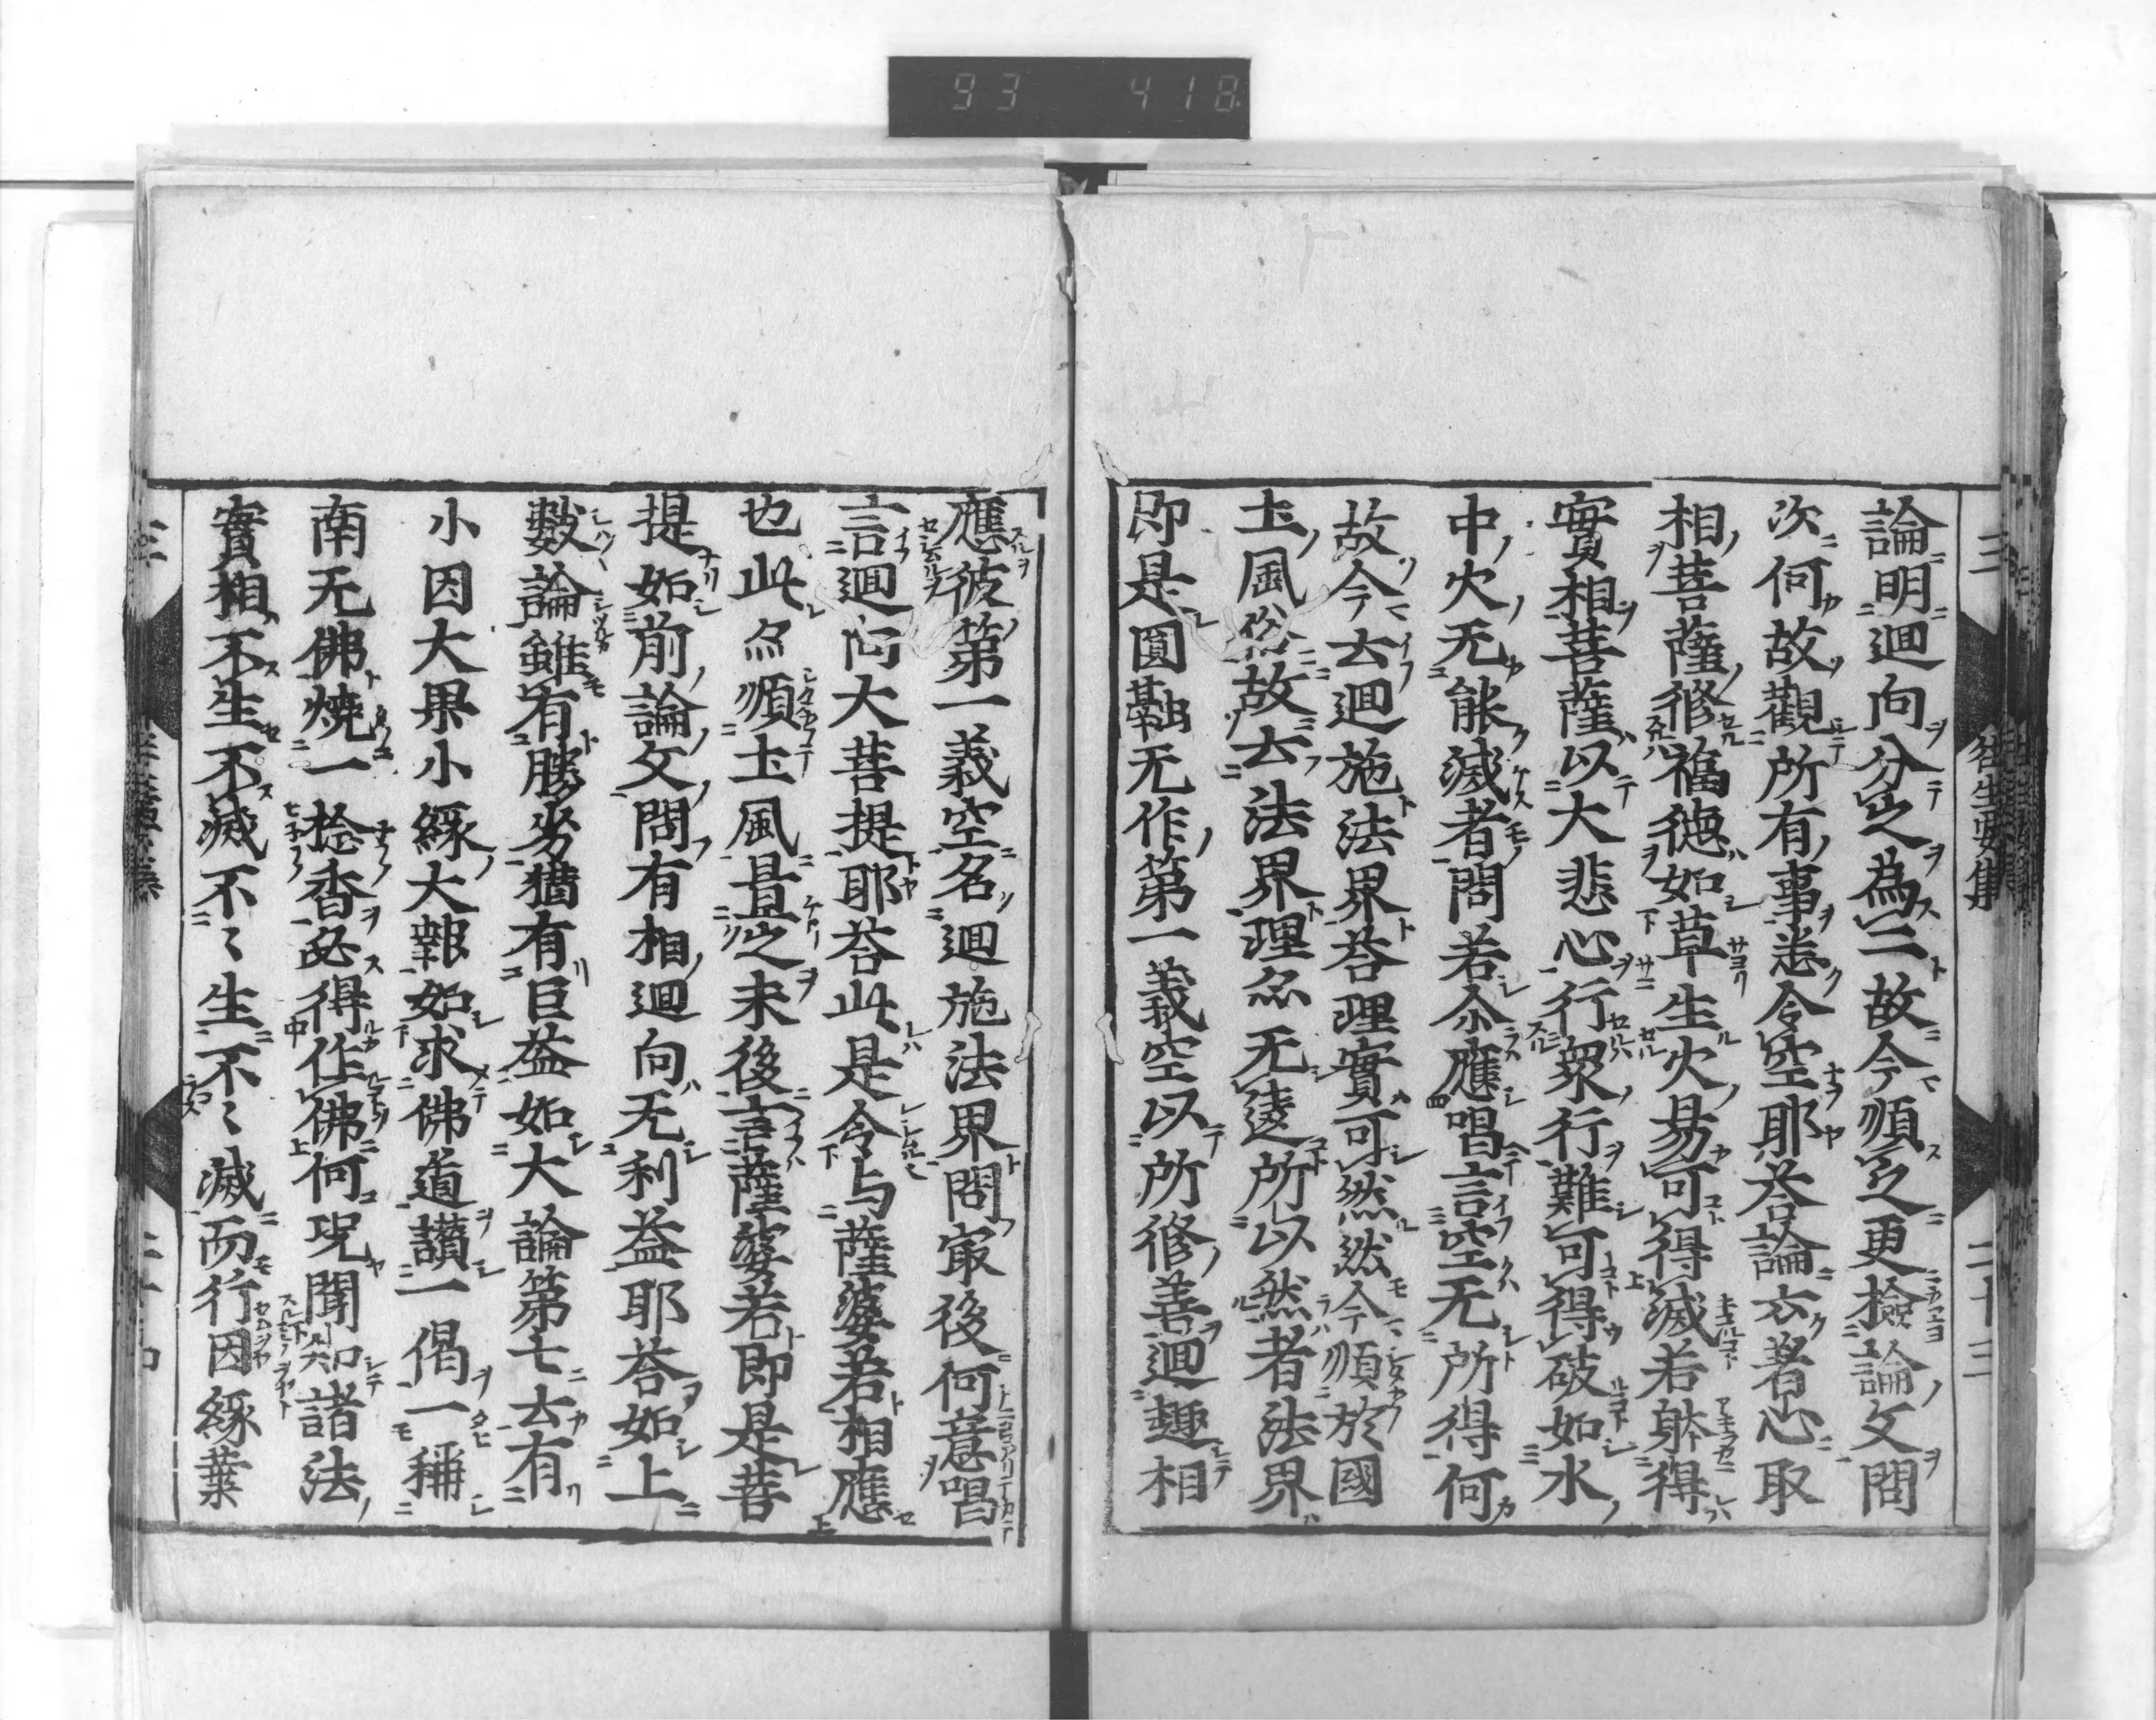 93 418
三 往生要集 二十三
論明廻向分之為二故今順之更撿論文問
次何故觀所有事悉令空耶荅論云著心取
相菩薩修福德如草生火易可得滅若躰得
實相菩薩以大悲心行衆行難可得破如水
中火无能滅者問若尒應唱言空无所得何
故今云廻施法界荅理實可然然今順於國
土風俗故云法界理然无違所以然者法界
即是圓融无作第一義空以所修善廻趣相
應彼第一義空名廻施法界問冣後何意唱
言廻向大菩提耶荅此是令与薩婆若相應
也此亦順土風置之末後言薩婆若即是菩
提如前論文問有相廻向无利益耶荅如上
數論雖有勝劣猶有巨益如大論第七云有
小因大果小緣大報如求佛道讃一偈一稱
南无佛燒一捻香必得作佛何况聞知諸法
實相不生不滅不〻生不〻滅而行因緣業